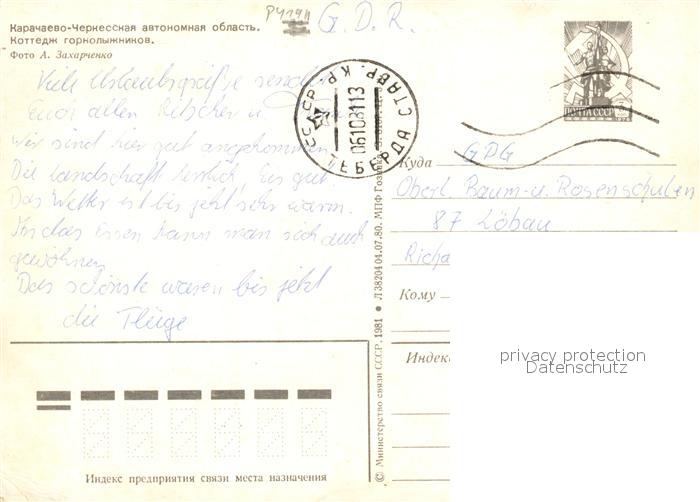 РУ1911
G.D.R.
Карачаево-Черкесская автономная область.
Коттедж горнолыжников.
Фото А. Захарченко
Viele Urlaubsgrüße senden
Euch allen Ritscher u.
Wir sind hier gut angekommen.
Die Landschaft herrlich, Eis gut
Das Wetter ist bis jetzt sehr warm.
An das Essen kann man sich auch
gewöhnen
Das schönste waren bis jetzt
die Flüge
СССР ТЕБЕРДА СТАВР. КР.
06108113
ПОЧТА СССР
Куда
GDG
Oberl. Baum- u. Rosenschulen
87 Löbau
Richa
Кому
Индекс
privacy protection
Datenschutz
© Министерство связи СССР, 1981 ● Л38204 04.07.80. МПФ Гознака
Индекс предприятия связи места назначения